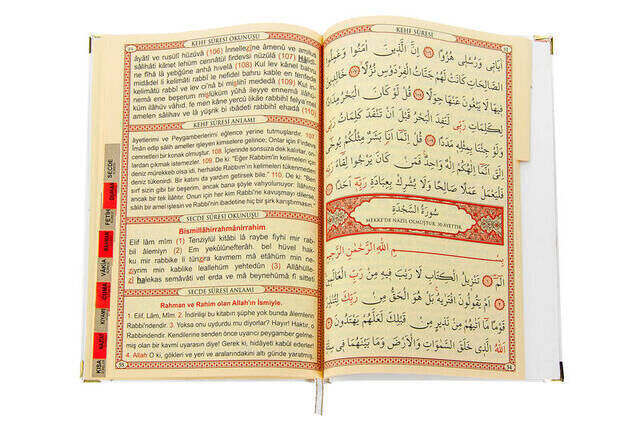 KEHF SÛRESİ OKUNUŞU
âyâtî ve rusulî hüzüvâ (106) İnnelleẕîne âmenû ve amiluṣ
sâlihâti kânet lehüm cennâtül firdevsi nüzülâ (107) Hâlidîne
fîhâ lâ yebğûne anhâ hıvelâ (108) Kul lev kânel bahru
midâdel li kelimâti rabbî le nefidel bahru kable en tenfede
kelimâtü rabbî ve lev ci'nâ bi mislihî mededâ (109) Kul in-
nemâ ene beşerum mislüküm yûhâ ileyye ennemâ ilâhü-
küm ilâhüv vâhid, fe men kâne yercû likâe rabbihî felya'mel
amelen sâlihav ve lâ yüşrik bi ıbâdeti rabbihî ehadâ (110)
KEHF SÛRESİ ANLAMI
âyetlerimi ve Peygamberlerimi eğlence yerine tutmuşlardır. 107.
İman edip salih ameller işleyen kimselere gelince; Onlar için Firdevs
cennetleri bir konak olmuştur. 108. İçlerinde sonsuza dek kalırlar, on-
lardan çıkmak istemezler. 109. De ki: "Eğer Rabbimin kelimeleri için
deniz mürekkep olsa idi, herhalde Rabbimin kelimeleri tükenmeden
deniz tükenirdi. Bir katını da yardım getirsek bile." 110. De ki: "Ben
sırf sizin gibi bir beşerim, ancak bana şöyle vahyolunuyor: İlâhınız
ancak bir tek ilâhtır. Onun için her kim Rabbi'ne kavuşmayı dilerse
salih amel işlesin ve Rabbine ibadetine hiç bir şirk karıştırmasın.
SECDE SÛRESİ OKUNUŞU
Bismillâhirrahmânirrahim
Elif lâm mîm (1) Tenzîlül kitâbi lâ raybe fîhi mir rab-
bil âlemîyn (2) Em yekûlûnefterâh, bel hüvel hak-
ku mir rabbike li tünẕira kavmem mâ etâhüm min ne-
ẕîyrim min kablike leallehüm yehtedûn (3) Allâhülle-
ẕî halekas semâvâti vel erda ve mâ beynehümâ fî sitteti
SECDE SÛRESİ ANLAMI
Rahman ve Rahim olan Allah'ın İsmiyle.
1. Elif, Lâm, Mîm. 2. İndirilişi bu kitabın şüphe yok bunda âlemlerin
Rabbi'ndendir. 3. Yoksa onu uydurdu mu diyorlar? Hayır! Haktır, o
Rabbindendir. Kendilerine senden önce uyarıcı peygamber gelme-
miş olan bir kavmi uyarasın diye! Gerek ki, hidâyeti kabûl ederler!
4. Allah O ki, gökleri ve yeri ve aralarındakini altı günde yaratmış,
SECDE
FETİH
VAKIA
CUMA
KIYAME
KISA
KEHF SÛRESİ
اٰيَاتِي وَرُسُلِي هُزُوًا ﴿١٠٦﴾ اِنَّ الَّذِينَ اٰمَنُوا وَعَمِلُوا
الصَّالِحَاتِ كَانَتْ لَهُمْ جَنَّاتُ الْفِرْدَوْسِ نُزُلًا ﴿١٠٧﴾ خَالِدِينَ
فِيهَا لَا يَبْغُونَ عَنْهَا حِوَلًا ﴿١٠٨﴾ قُلْ لَوْ كَانَ الْبَحْرُ مِدَادًا
لِكَلِمَاتِ رَبِّي لَنَفِدَ الْبَحْرُ قَبْلَ اَنْ تَنْفَدَ كَلِمَاتُ رَبِّي
وَلَوْ جِئْنَا بِمِثْلِهِ مَدَدًا ﴿١٠٩﴾ قُلْ اِنَّمَا اَنَا بَشَرٌ مِثْلُكُمْ يُوحٰى
اِلَيَّ اَنَّمَا اِلٰهُكُمْ اِلٰهٌ وَاحِدٌ فَمَنْ كَانَ يَرْجُوا لِقَاءَ رَبِّهِ
فَلْيَعْمَلْ عَمَلًا صَالِحًا وَلَا يُشْرِكْ بِعِبَادَةِ رَبِّهِ اَحَدًا ﴿١١٠﴾
سُورَةُ السَّجْدَةِ
MEKKE'DE NAZİL OLMUŞTUR. 30 AYETTİR.
بِسْمِ اللّٰهِ الرَّحْمٰنِ الرَّحِيمِ
الٓمٓ ﴿١﴾ تَنْزِيلُ الْكِتَابِ لَا رَيْبَ فِيهِ مِنْ رَبِّ الْعَالَمِينَ ﴿٢﴾
اَمْ يَقُولُونَ افْتَرٰيهُ بَلْ هُوَ الْحَقُّ مِنْ رَبِّكَ لِتُنْذِرَ
قَوْمًا مَا اَتٰيهُمْ مِنْ نَذِيرٍ مِنْ قَبْلِكَ لَعَلَّهُمْ يَهْتَدُونَ ﴿٣﴾
اَللّٰهُ الَّذِي خَلَقَ السَّمٰوَاتِ وَالْاَرْضَ وَمَا بَيْنَهُمَا فِي